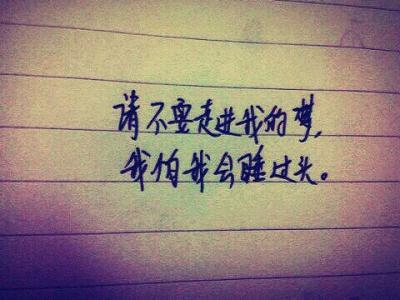 请不要走进我的梦，
我怕我会睡过头。